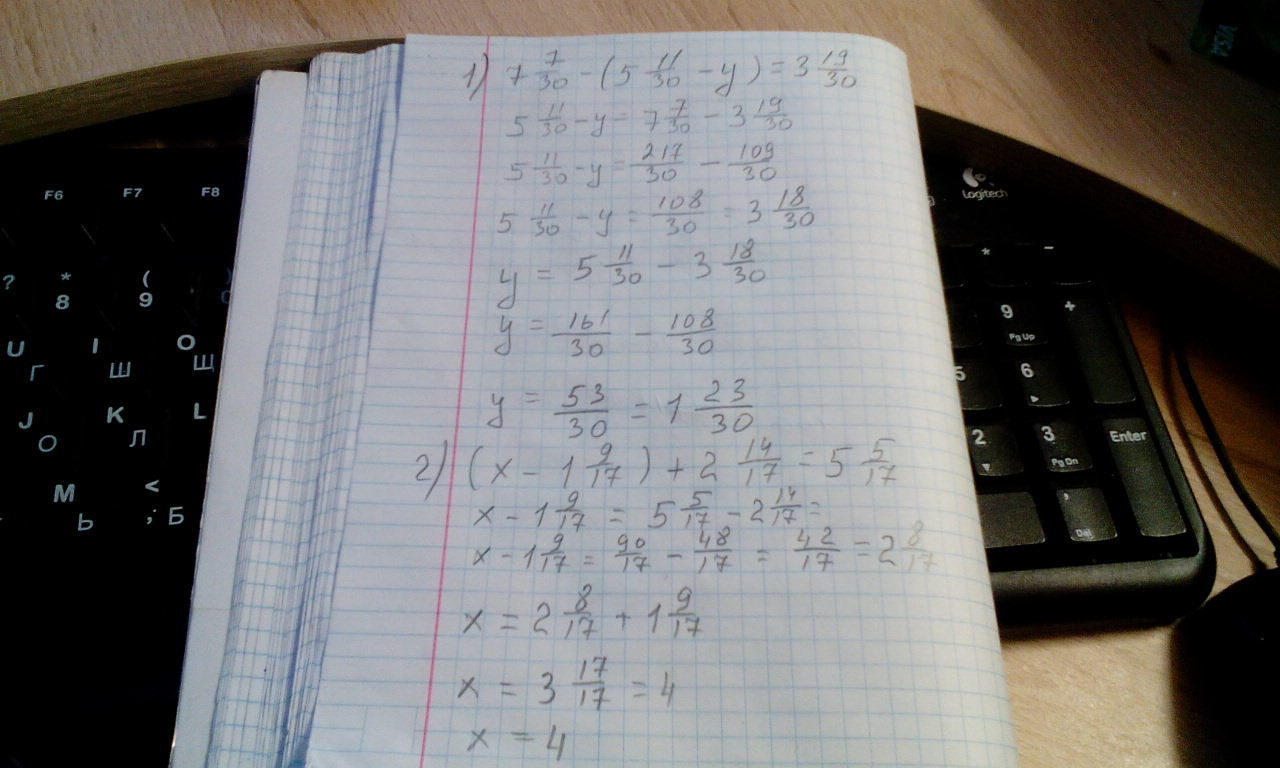 1) 7 7/30 - (5 11/30 - y) = 3 19/30
5 11/30 - y = 7 7/30 - 3 19/30
5 11/30 - y = 217/30 - 109/30
5 11/30 - y = 108/30 = 3 18/30
y = 5 11/30 - 3 18/30
y = 161/30 - 108/30
y = 53/30 = 1 23/30
2) (x - 1 9/17) + 2 14/17 = 5 5/17
x - 1 9/17 = 5 5/17 - 2 14/17 =
x - 1 9/17 = 90/17 - 48/17 = 42/17 = 2 8/17
x = 2 8/17 + 1 9/17
x = 3 17/17 = 4
x = 4
F6 F7 F8
? * (
8 9
U I O
Г Ш Щ
J K L
О Л
M <
Ь ; Б
VISA
Logitech
* -
9 +
Pg Up
5 6
2 3 Enter
Pg Dn
,
Del